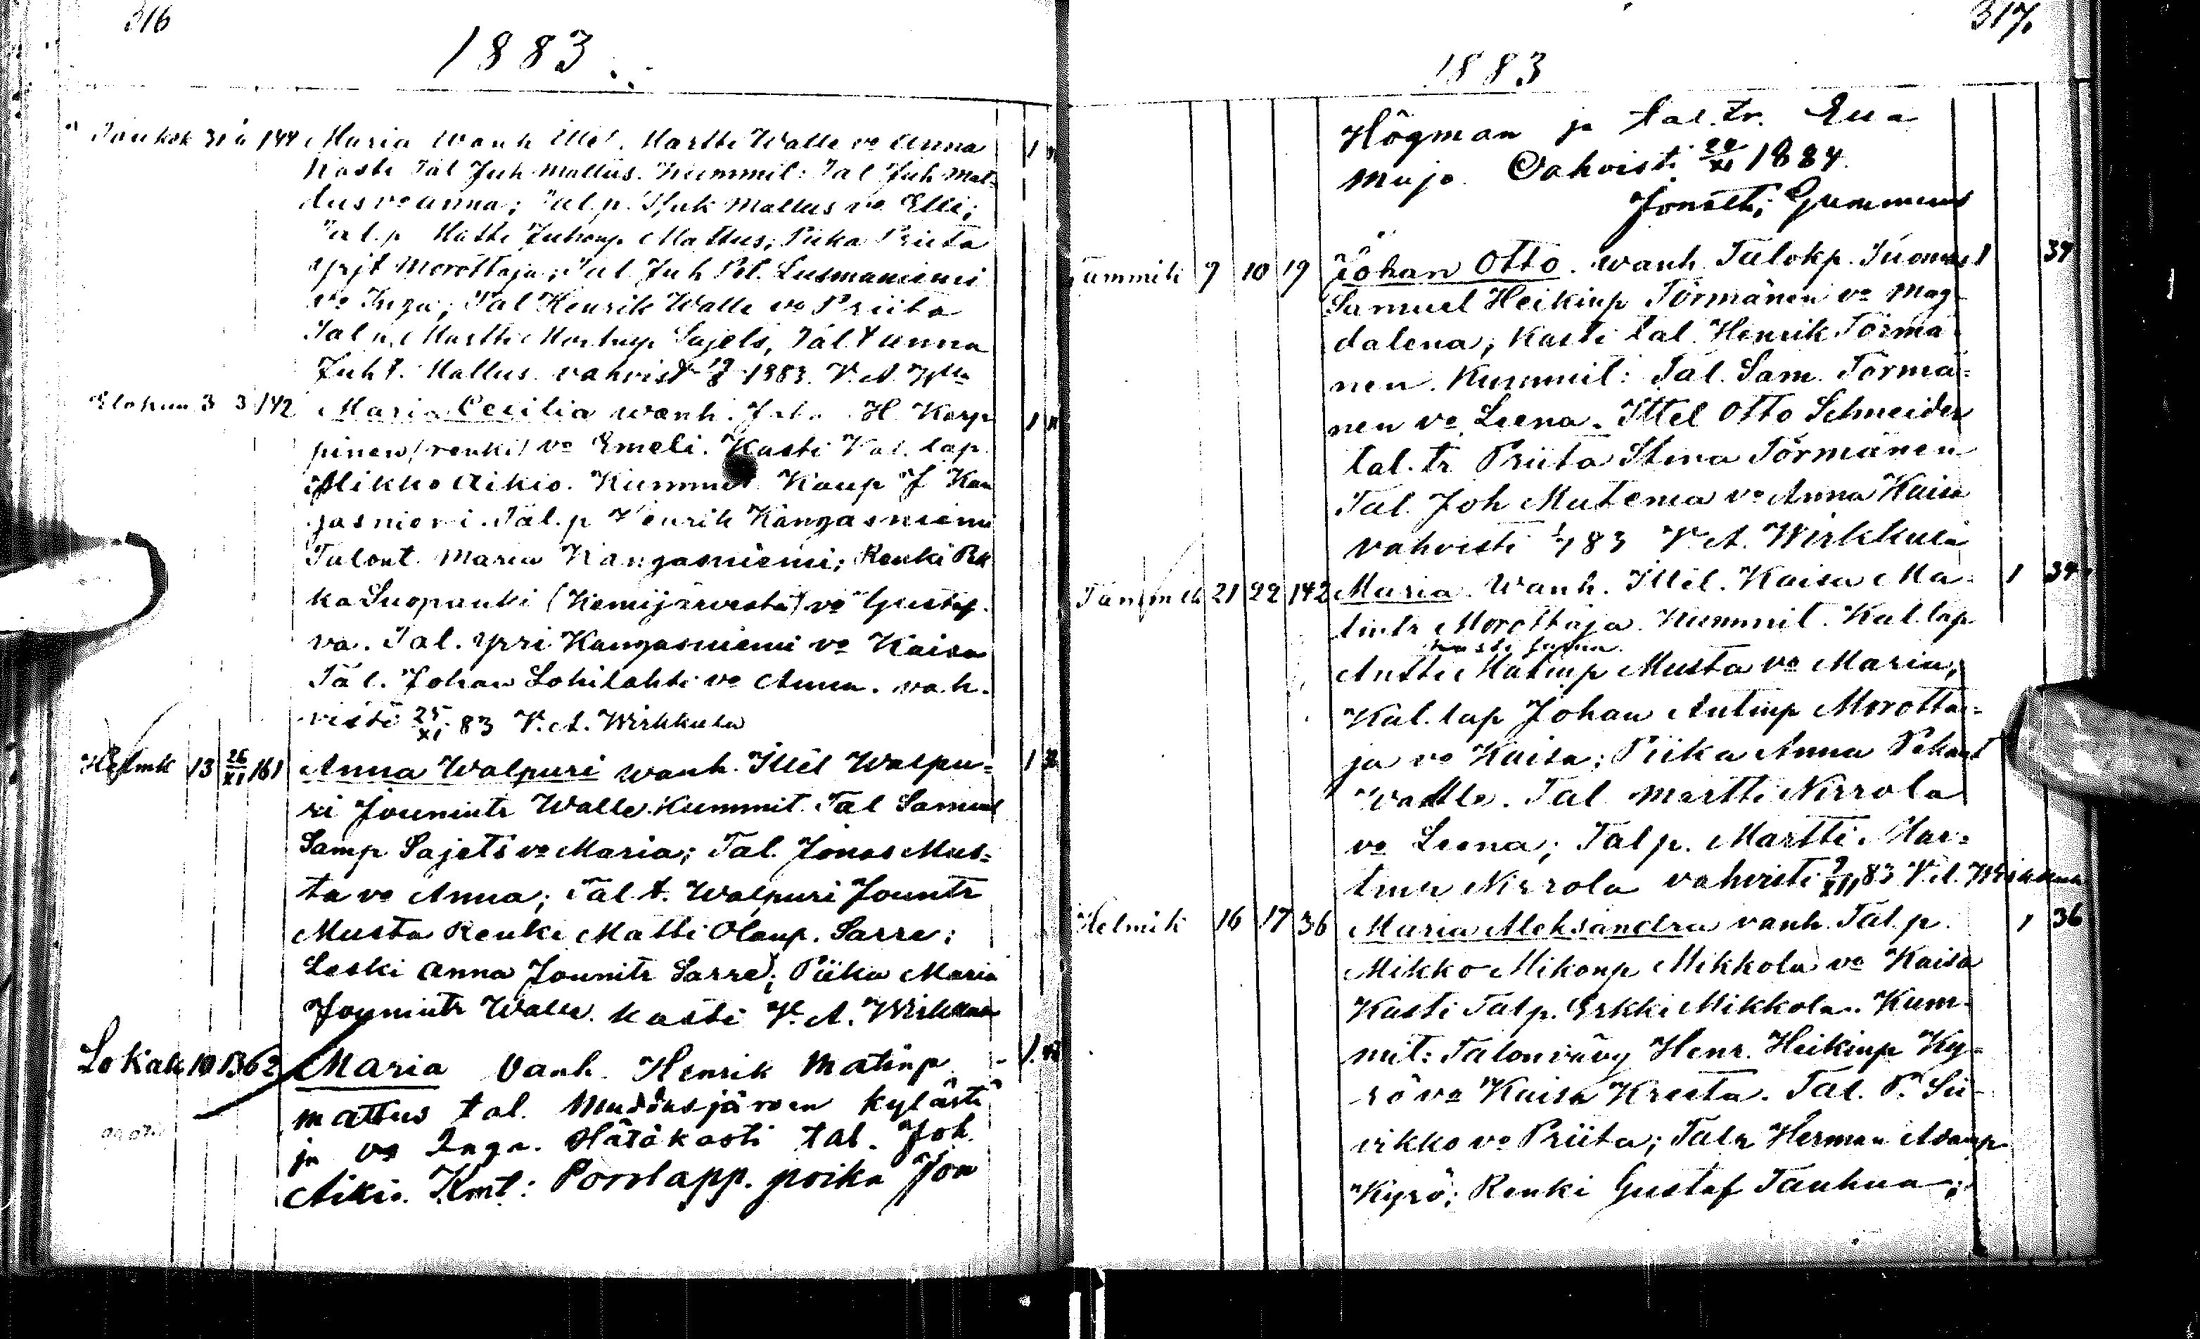 316
1883.
Toukok 31 144 Maria wanh. Martti Walle vo Anna 1
Kasti Tal Juh Mattus. Kummit: Tal Juh Mat-
tus vo Anna; Tal.p. Mattus vo Elli;
Tal.p Matti Juhanp Mattus; Piika Priita
Yrjt Morottaja; Tal. Juh Pet. Lusmaniemi
vo Inga; Tal Henrik Walle vo Priita
Tal p. Martti Sajets, Tal.t Anna
Juh t. Mattus. vahvist 1883. V. A.
Elokuu 3 3 142 Maria Cecilia wanh. H. Karp 1
pinen (renki) vo Emeli. Kasti Kal. lap.
Mikko Aikio. Kummit Kaup J Kan
gasniemi. Tal.p Henrik Kangasniemi
Talont. Maria Kangasniemi; Renki Pek
ka Suopanki (Kemijärvestä) vo Gustaf-
va. Tal. Yrj Kangasniemi vo Kaisa
Tal. Johan Lohilahti vo Anna. vah-
visti 25/XI 83 V. A. Wirkkula
Helmk 13 26/XI 161 Anna Walpuri wanh. Ittel Walpu- 1
ri Jounintr Walle. Kummit. Tal Samuel
Samp Sajets vo Maria; Tal. Jonas Mus-
ta vo Anna; Tal.t. Walpuri Jountr
Musta Renki Matti Olanp. Sarre;
Leski Anna Jounitr Sarre; Piika Maria
Jounintr Walle. kasti V. A. Wirkkula
Lokak 10 62 Maria Vanh. Henrik Matinp 1
Mattus tal. Muddusjärven kylästä
ja vo Inga. Hätäkasti tal. Joh.
Aikio. Kmt: Porolapp. poika Jon
317.
1883
Högman ja tal.tr. Eva
Mujo. Vahvisti 1884.
Jonatti Gummerus
Tammik 9 10 19 Johan Otto. wanh. Talokp. Tuomas 1 34
Samuel Heikinp Törmänen vo Mag-
dalena; Kasti tal. Henrik Törmä-
nen. Kummit: Tal. Sam. Törmä-
nen vo Leena. Ittel Otto Schneider
tal.tr. Priita Stina Törmänen
Tal. Joh Mutenia vo Anna Kaisa
vahvisti 83 V. A. Wirkkula
Tammik 21 22 142 Maria. Wanh. Ittel. Kaisa Ma- 1 34
tintr Morottaja. Kummit. Kal.lap
Antti Matinp Musta vo Maria;
Kal.lap Johan Antinp Morotta-
ja vo Kaisa; Piika Anna
Walle. Tal. Martti Nirrola
vo Leena; Talp. Martti Mar-
tinp Nirrola vahvisti 83 V. A. Wirkkula
Helmik 16 17 36 Maria Aleksandra vanh. Tal.p. 1 36
Mikko Mikonp Mikkola vo Kaisa
Kasti Talp. Erkki Mikkola. Kum-
mit: Talonvävy Henr. Heikinp Ky-
rö vo Kaisa Kreeta. Tal. P. Sii-
vikko vo Priita; Talr Herman Adamp
Kyrö; Renki Gustaf Tanhua;